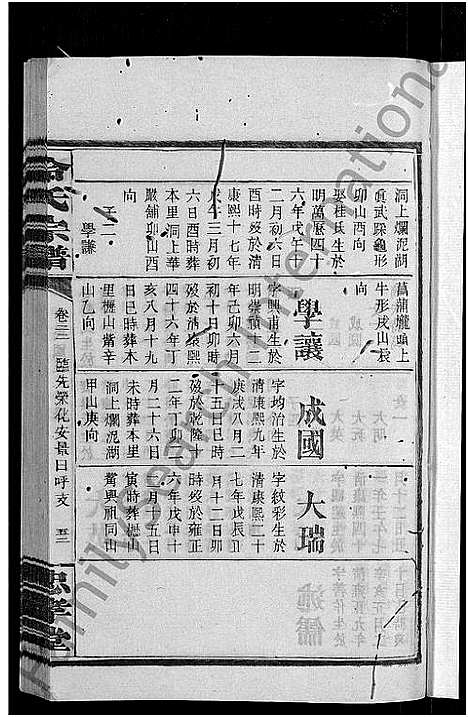 洞上爛泥湖
眞武踩龜形
卯山酉向
娶桂氏生於
明萬曆四十
六年戊午十
二月初六日
酉時歿於清
康熙十七年
戊午三月初
六日酉時葬
本里洞上華
嚴舖卯山酉
向
子二
學謙
菖蒲壠頭上
牛形戌山辰
向
學讓
字興甫生於
明崇禎十二
年己卯六月
初十日卯時
歿於清康熙
四十六年丁
亥八月十九
日巳時葬本
里樅山紫辛
山乙向
成國
字均治生於
清康熙九年
庚戌八月二
十五日巳時
歿於乾隆十
二年丁卯二
月二十六日
未時葬本里
洞上爛泥湖
甲山庚向
大瑞
字紋彩生於
清康熙二十
七年戊辰五
月十二日卯
時歿於雍正
六年戊申十
二月十五日
寅時葬樅山
黃興祖同山
氏宗譜
卷三 臨先榮化安景曰呼支 五二
忠孝堂